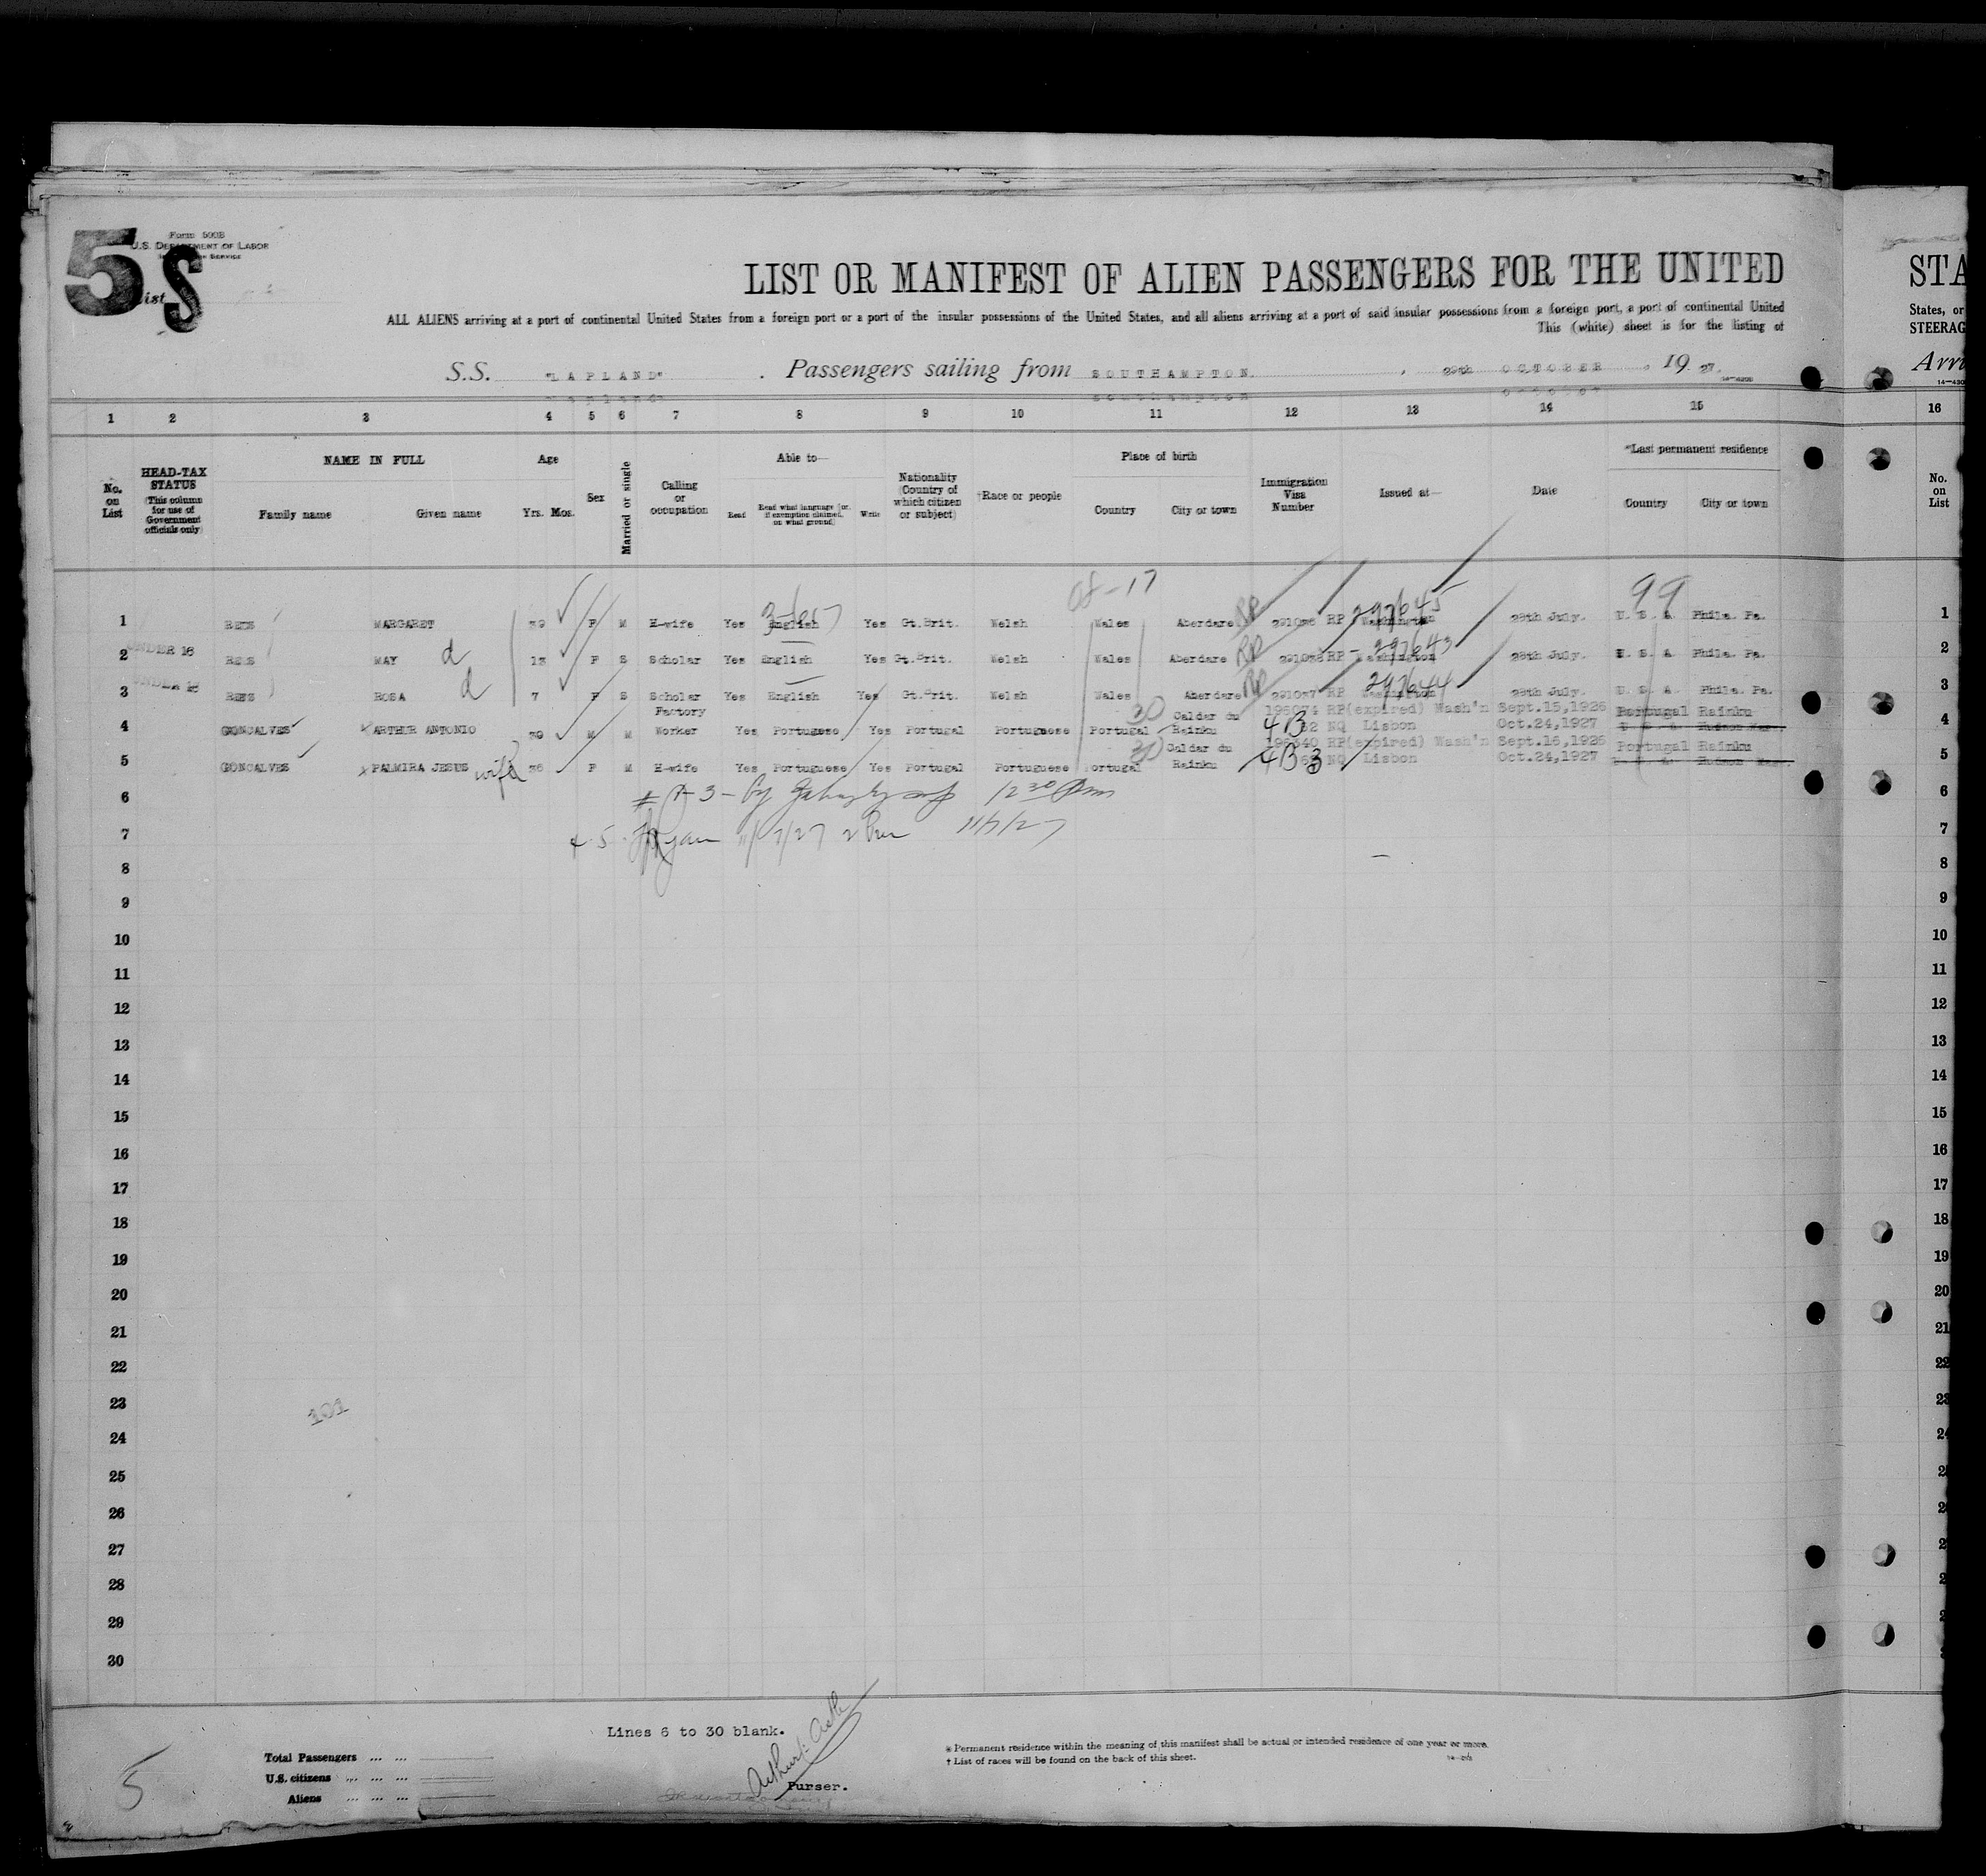 5 S
Form 500B
U.S. DEPARTMENT OF LABOR
SERVICE
List
LIST OR MANIFEST OF ALIEN PASSENGERS FOR THE UNITED
STA
ALL ALIENS arriving at a port of continental United States from a foreign port or a port of the insular possessions of the United States, and all aliens arriving at a port of said insular possessions from a foreign port, a port of continental United
States, or
This (white) sheet is for the listing of
STEERAG
S.S. "LAPLAND" . Passengers sailing from SOUTHAMPTON , 29th OCTOBER , 19 27.
Arri
1 2 3 4 5 6 7 8 9 10 11 12 13 14 15 16
No. on List
HEAD-TAX STATUS (This column for use of Government officials only)
NAME IN FULL
Family name Given name
Age
Yrs. Mos.
Sex
Married or single
Calling or occupation
Able to—
Read Read what language [or, if exemption claimed, on what ground] Write
Nationality (Country of which citizen or subject)
†Race or people
Place of birth
Country City or town
Immigration Visa Number
Issued at—
Date
*Last permanent residence
Country City or town
No. on List
99
1 REES MARGARET 39 F M H-wife Yes English Yes Gt.Brit. Welsh Wales Aberdare RP RP 297645 Washington 28th July. U. S. A. Phila. Pa. 1
UNDER 16
2 REES MAY d 13 F S Scholar Yes English Yes Gt.Brit. Welsh Wales Aberdare RP RP 297643 Washington 28th July. U. S. A. Phila. Pa. 2
UNDER 16
3 REES ROSA d 7 F S Scholar Yes English Yes Gt.Brit. Welsh Wales Aberdare RP 291037 RP 297644 Washington 28th July. U. S. A. Phila. Pa. 3
Factory 30 Caldar du 196074 RP(expired) Wash'n Sept.15,1926 Portugal Rainku
4 GONCALVES ARTHUR ANTONIO 39 M M Worker Yes Portuguese Yes Portugal Portuguese Portugal Rainku 62 NQ Lisbon Oct.24,1927 4
30 Caldar du 196340 RP(expired) Wash'n Sept.16,1926 Portugal Rainku
5 GONCALVES PALMIRA JESUS wife 36 F M H-wife Yes Portuguese Yes Portugal Portuguese Portugal Rainku 63 NQ Lisbon Oct.24,1927 5
6 6
7 11/7/27 11/7/27 7
8 8
9 9
10 10
11 11
12 12
13 13
14 14
15 15
16 16
17 17
18 18
19 19
20 20
21 21
22 22
23 101 23
24 24
25
26
27
28
29
30
Lines 6 to 30 blank.
Total Passengers ... ...
U.S. citizens ... ... ...
Aliens ... ... ...
Purser.
* Permanent residence within the meaning of this manifest shall be actual or intended residence of one year or more.
† List of races will be found on the back of this sheet.
5